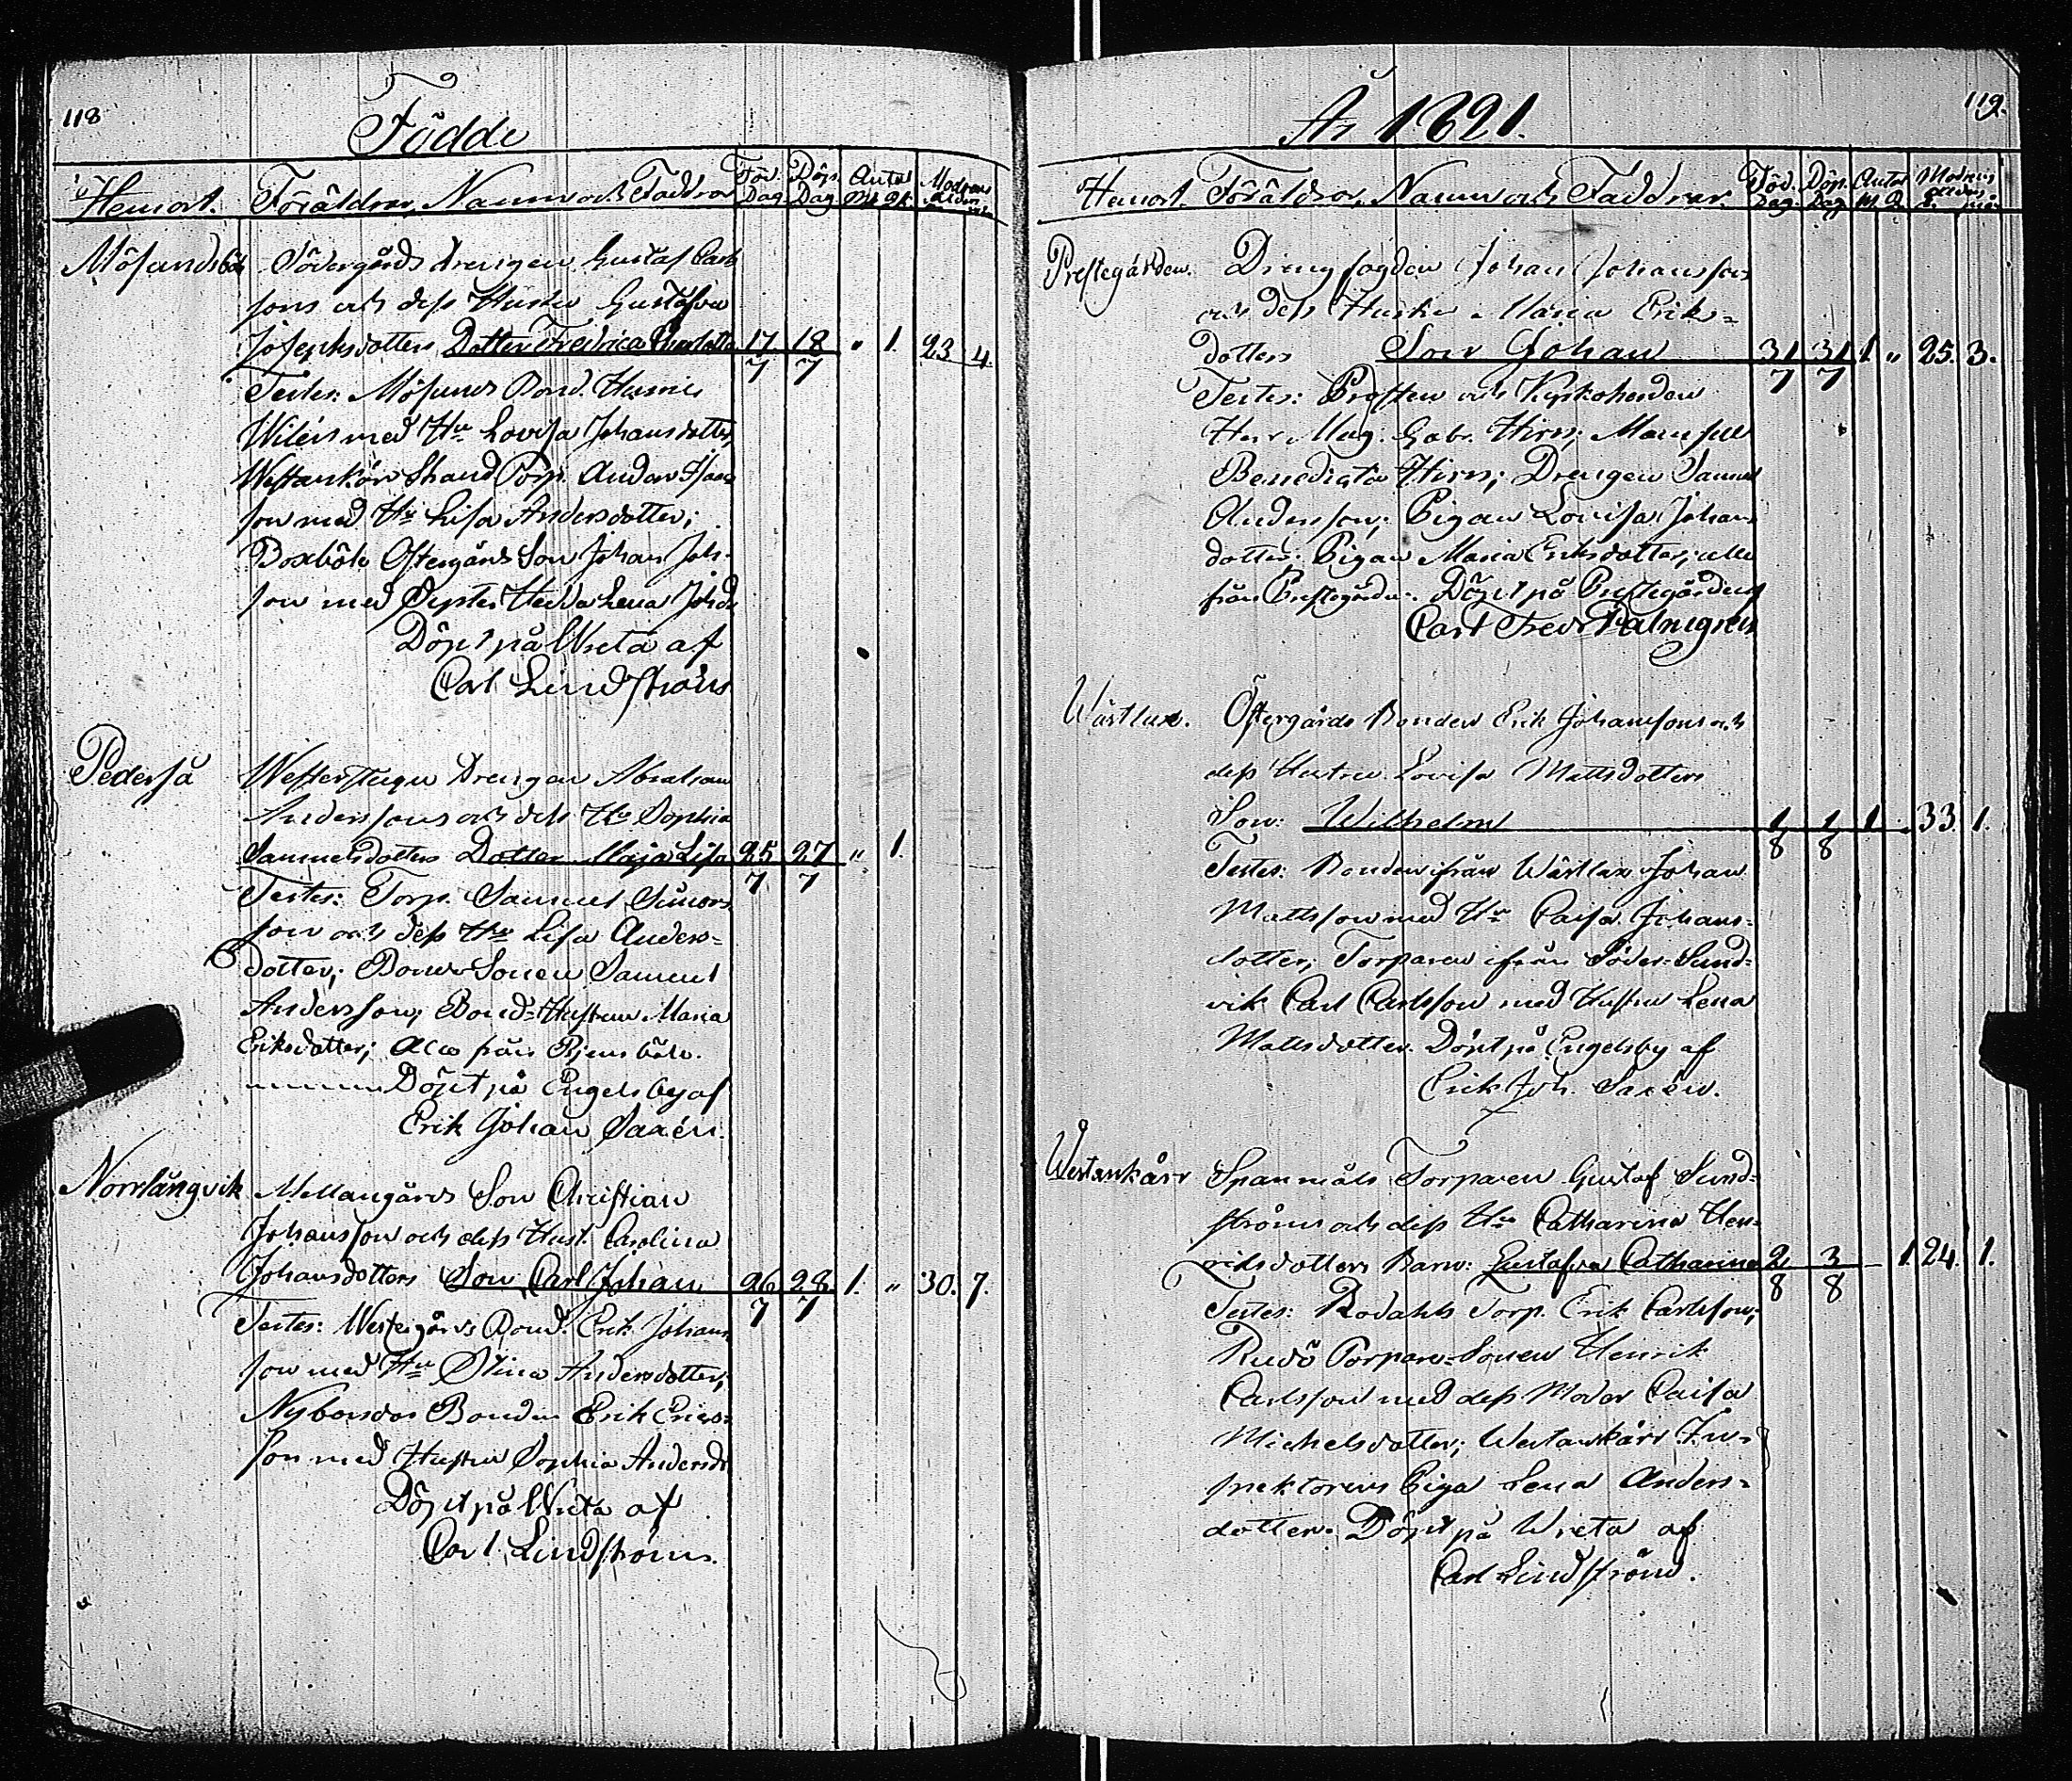 118
Födde
Hemort. Föräldrar, Namn och Faddrar Föd. Dag Döp. Dag Antal M. Qk. Modrens ålder
Mösundsböle Södergårds drengen Gustaf Carls
sons och dess Hustru Gustafva
Josephsdotters Dotter Fredrica Charlotta 17/7 18/7 " 1. 23 4.
Testes: Mösunds Bond.
Wilén med Hu Lovisa Johansdotter,
Westankärr Strand Torp. Anders Isacs
son med Hu Lisa Andersdotter;
Boxböle Östergårds Son Johan Joh.
son med Syster Hedda Lena Johsdr
Döpt på Wreta af
Carl Lindström
Pederså Westerstugu drengen Abraham
Anderssons och dess Hu Sophia
Samuelsdotters Dotter Maja Lisa 25/7 27/7 " 1.
Testes: Torp. Samuel Simons
son och dess Hu Lisa Anders=
dotter; Bonde Sonen Samuel
Andersson; Bond=Hustrun Maria
Eriksdotter; Alla från
Döpt på Engelsby af
Erik Johan Saxén.
Norrlångvik Mellangårds Son Christian
Johansson och dess Hust. Carolina
Johansdotters Son Carl Johan 26/7 28/7 1. " 30. 7.
Testes: Westergårds Bond. Erik Johans
son med Hu Stina Andersdotter;
Nybondas Bonden Erik Erics=
son med Hustru Sophia Andersdr
Döpt på Wreta af
Carl Lindström.
119.
År 1821.
Hemort. Föräldrar, Namn och Faddrar. Föd. Dag. Döp. Dag Antal M. Q. Modrens ålder år. mån.
Prestegården. Drengfogden Johan Johansson
och dess Hustru Maria Eriks=
dotters Son Johan 31/7 31/7 1 " 25. 3.
Testes: Prosten och Kyrkoherden
Herr Mag. Gabr. Hirn; Mamsell
Benedicta Hirn; Drengen Samuel
Andersson; Pigan Lovisa Johans
dotter; Pigan Maria Eriksdotter; alla
från Prestegården. Döpt på Prestegården af
Carl Fredr Palmgren
Wärtlax. Östergårds Bonden Erik Johanssons och
dess Hustru Lovisa Mattsdotters
Son: Wilhelm 1/8 1/8 1 . 33. 1.
Testes: Bonden ifrån Wärtlax Johan
Mattsson med Hu Caisa Johans=
dotter; Torparen ifrån Söder=Sund=
vik Carl Carlsson med Hustru Lena
Mattsdotter. Döpt på Engelsby af
Erik Joh. Saxén.
Westankärr Spanmåls Torparen Gustaf Sund=
ströms och dess Hu Catharina Hen=
riksdotters Barn: Gustafva Catharina 2/8 3/8 – 1. 24. 1.
Testes: Rodahls Torp. Erik Carlsson;
Rudö Torpare=Sonen Henrik
Carlsson med dess Moder Caisa
Michelsdotter; Westankärr In=
spektorens Piga Lena Anders=
dotter. Döpt på Wreta af
Carl Lindström.